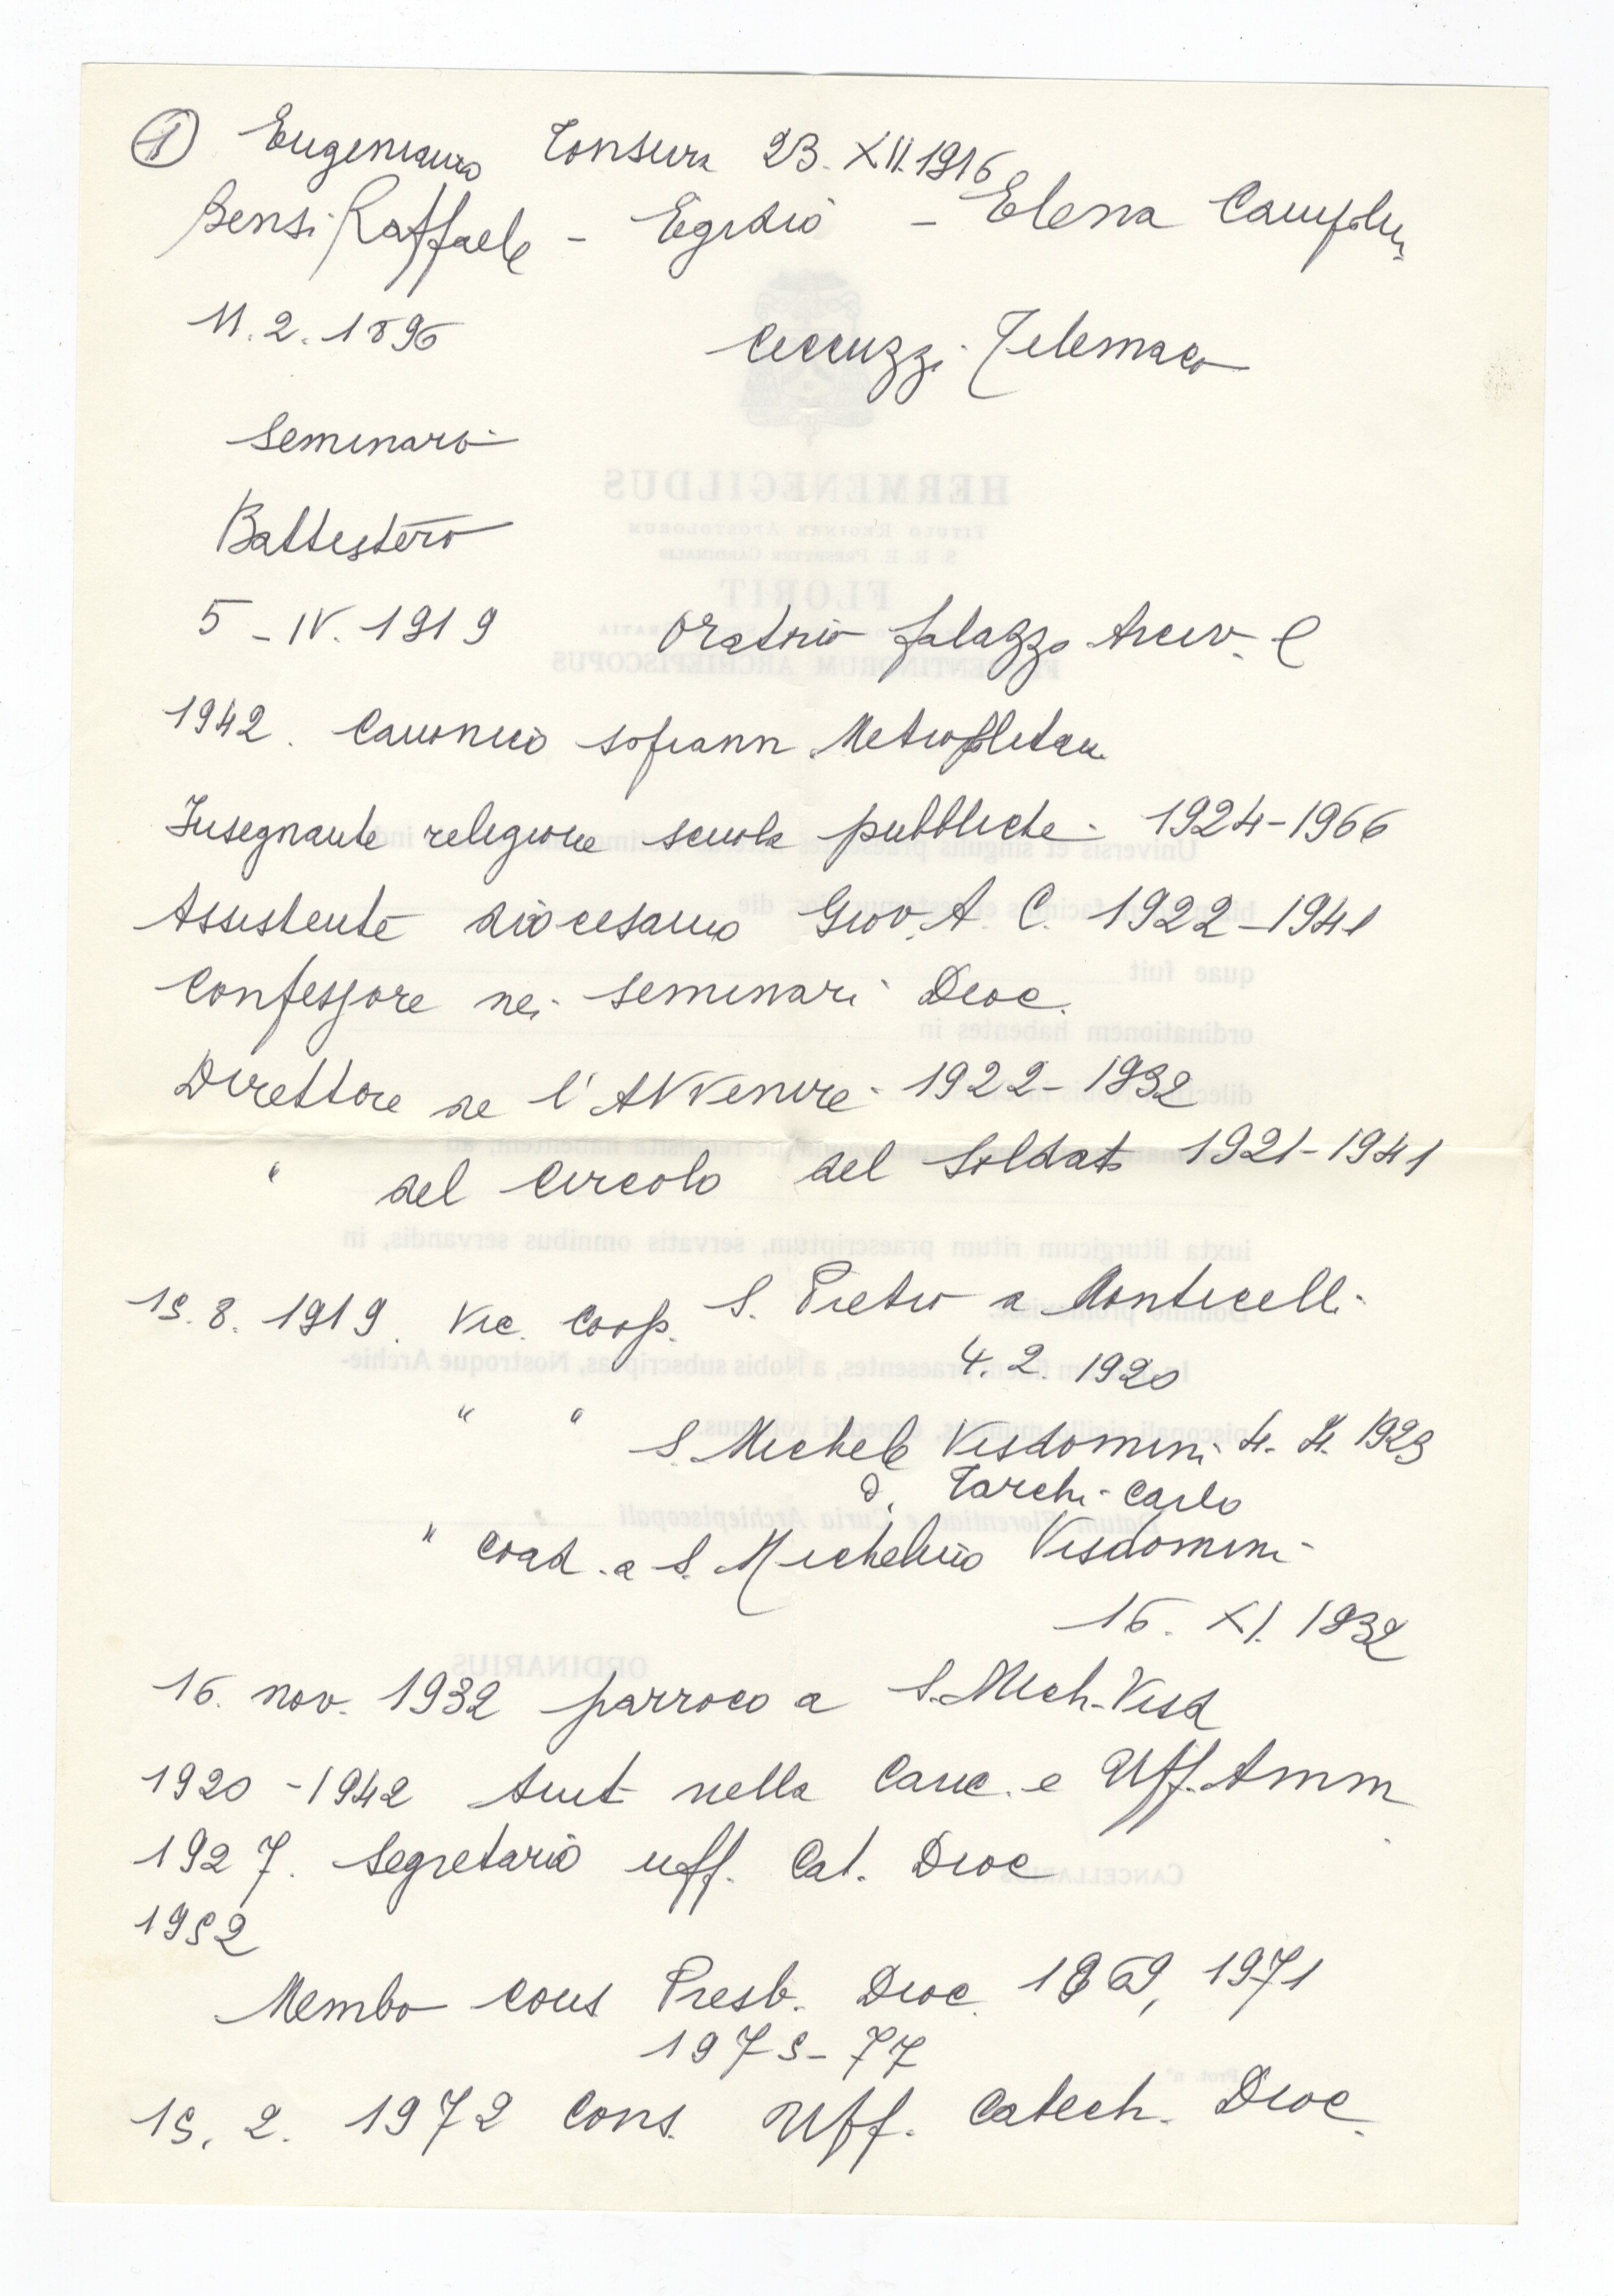 1 Eugeniano Tonsura 23. XII. 1916
Bensi Raffaele - Egidio - Elena
11. 2. 1896 Ceccuzzi Telemaco
Seminario
Battistero
5 - IV. 1919 Oratorio palazzo Arciv.
1942. Canonico soprann Metropolitan
Insegnante religione scuole pubbliche - 1924-1966
Assistente diocesano Giov. A. C. 1922-1941
Confessore nei seminari Dioc.
Direttore de l'Avvenire - 1922-1932
" del Circolo del Soldato 1921-1941
15. 8. 1919. Vic. Coop. S. Pietro a Monticelli
4. 2. 1920
" " S. Michele Visdomini 4. 4. 1923
D. Tarchi Carlo
" Coad. a S. Michelino Visdomini
16. XI. 1932
16. nov. 1932 parroco a S. Mich. Visd
1920-1942 Aiut nella Canc. e Uff. Amm
1927. Segretario uff. Cat. Dioc
1952
Membo Cons Presb. Dioc. 1969, 1971
1975-77
15. 2. 1972 Cons. Uff. Catech. Dioc.
HERMENEGILDUS
TITULO REGINAE APOSTOLORUM
S. R. E. PRESBYTER CARDINALIS
FLORIT
FLORENTINORUM ARCHIEPISCOPUS
quae fuit
ordinationem habentes in
iuxta liturgicum ritum praescriptum, servatis omnibus servandis, in
Datum Florentiae e Curia Archiepiscopali
ORDINARIUS
CANCELLARIUS
Prot. n°